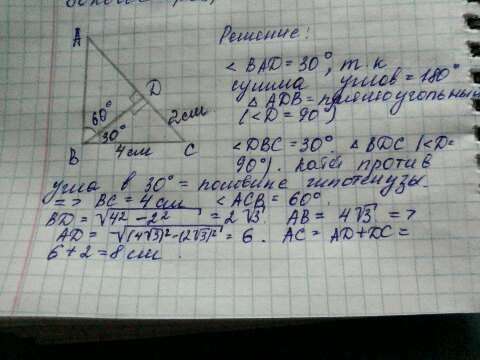 Решение:
A
D
60°
30°
2 см
B
4 см
C
< BAD = 30°, т.к
сумма углов = 180°
△ ADB = прямоугольный
(<D = 90°)
<DBC = 30°. △ BDC (<D=
90°). Катет против
угла в 30° = половине гипотенузы.
=> BC = 4 см <ACB = 60°.
BD = √4² - 2² = 2√3 AB = 4√3 =>
AD = √(4√3)² - (2√3)² = 6. AC = AD + DC =
6 + 2 = 8 см